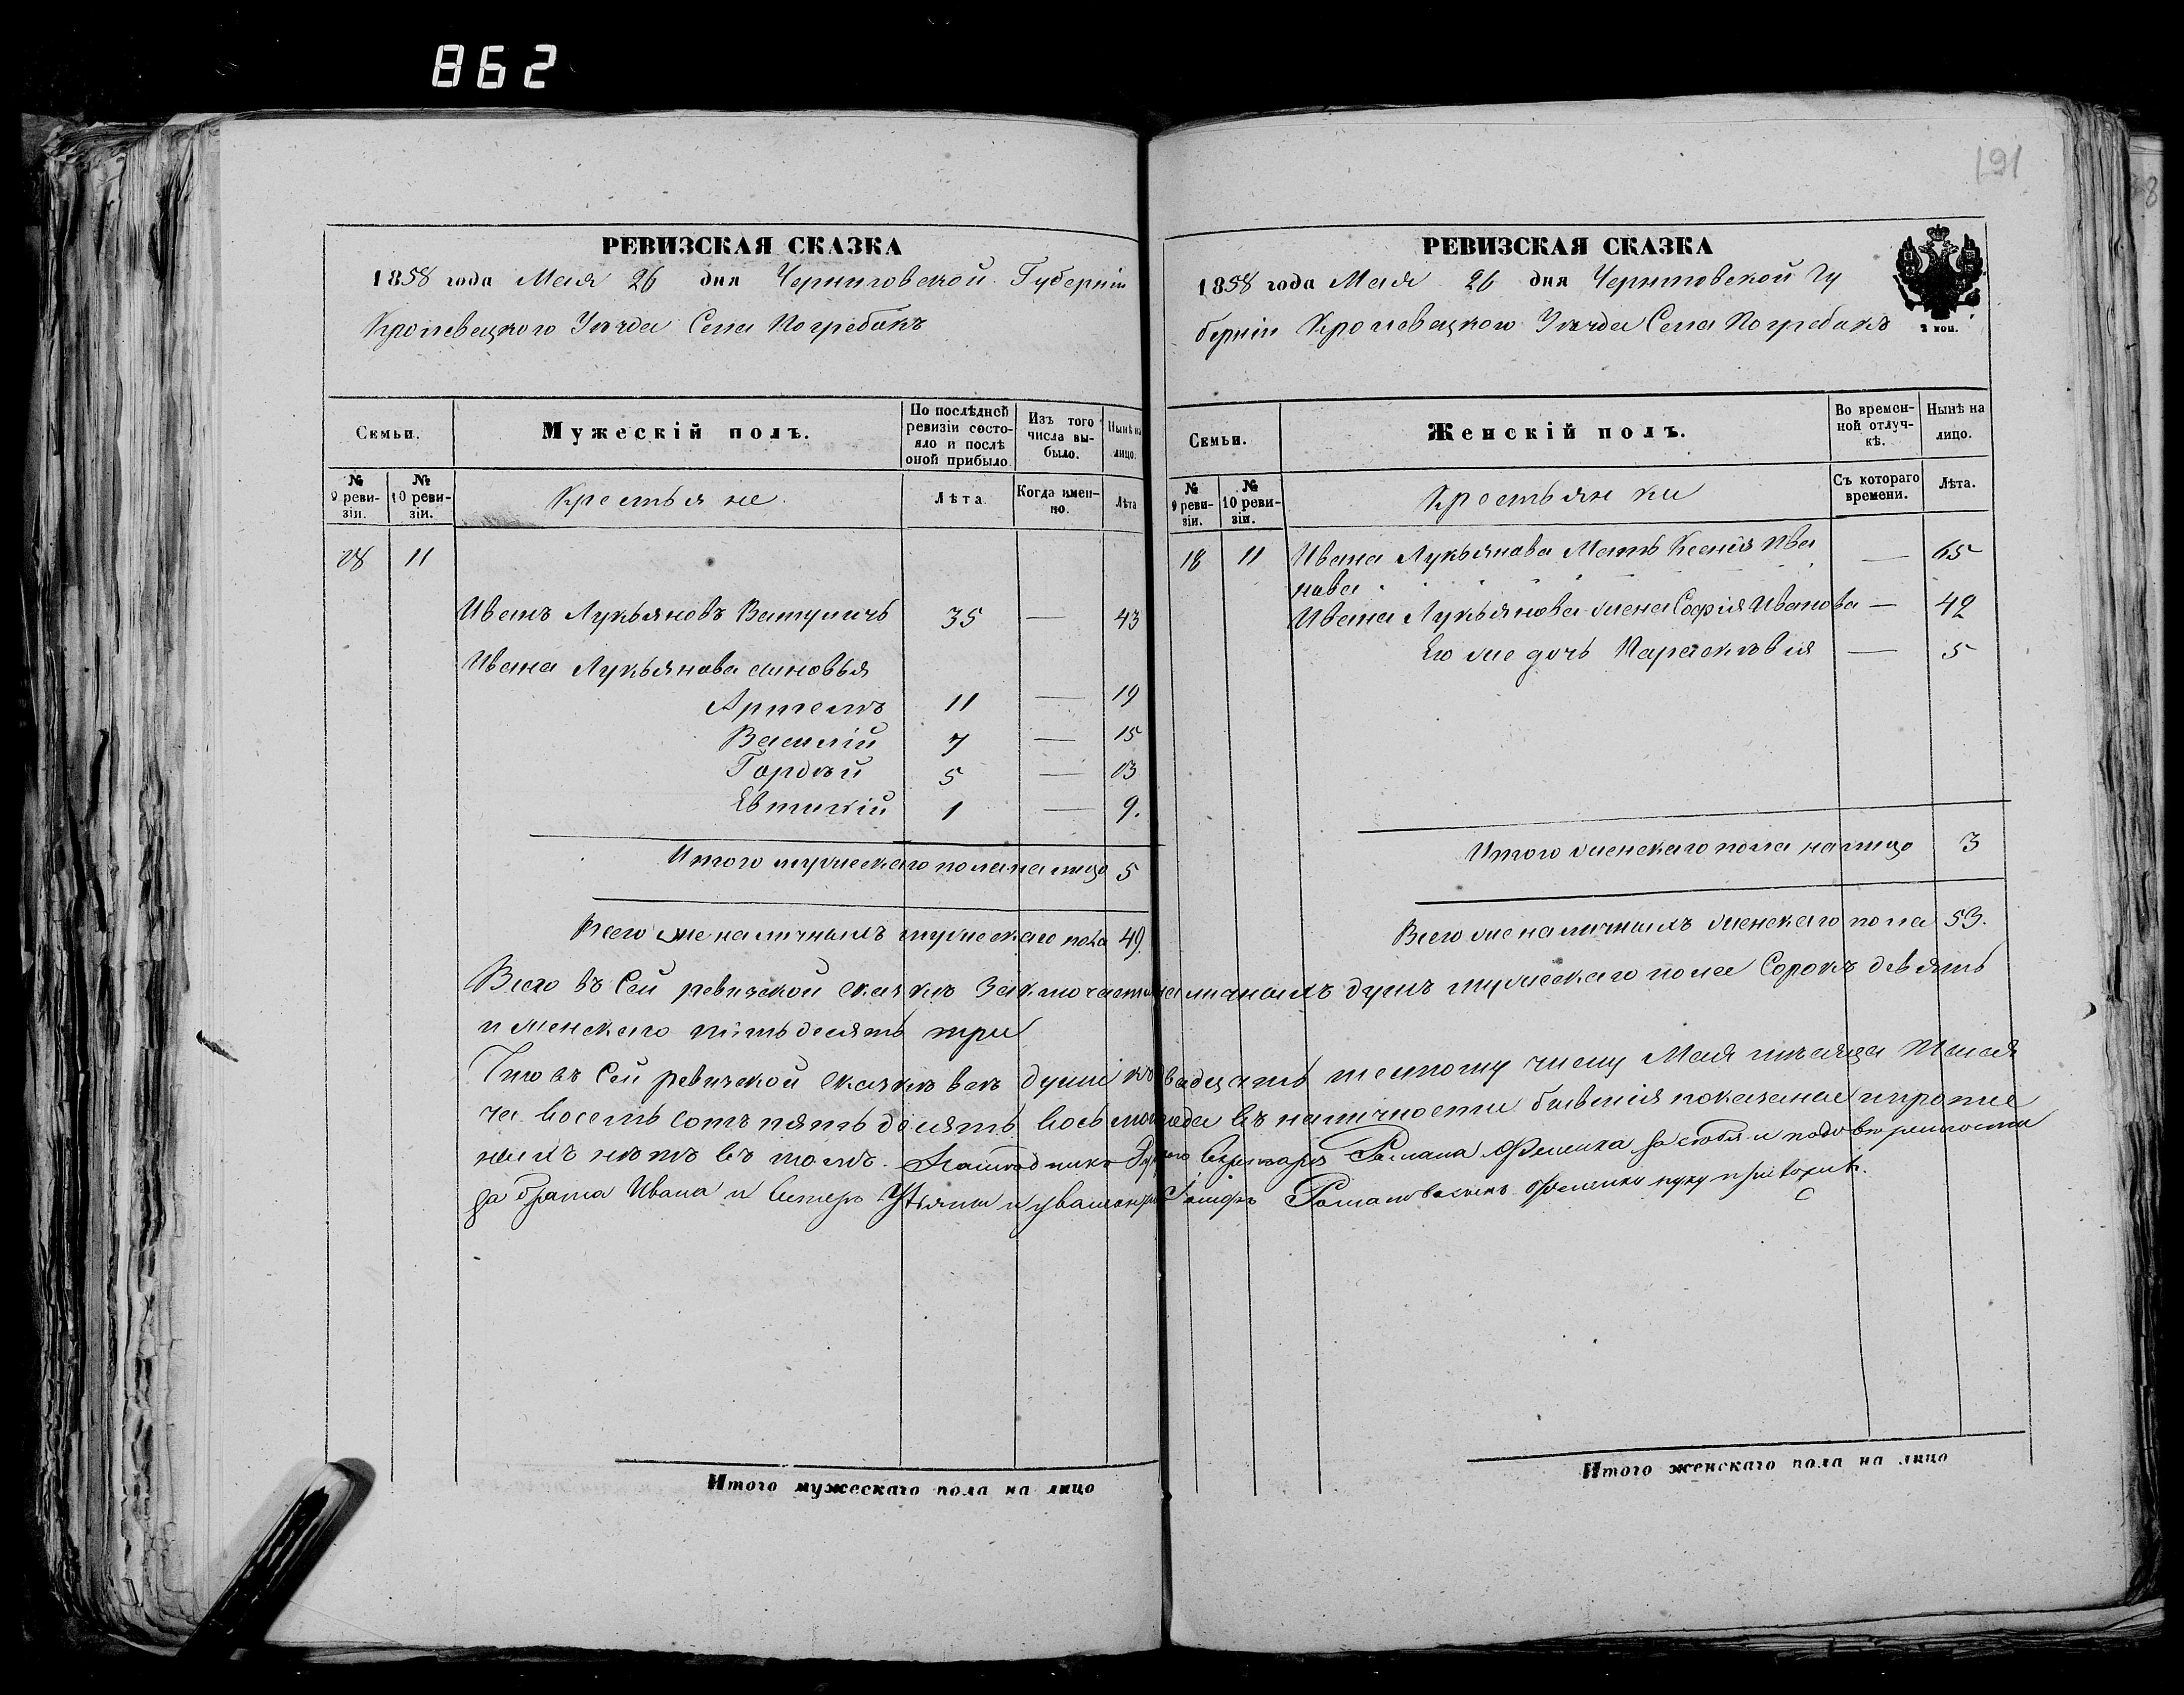 862
РЕВИЗСКАЯ СКАЗКА
1858 года Мая 26 дня Черниговской Губерніи
Кролевецкого Уѣзда Села Погребакъ
Семьи.
Мужескій полъ.
По послѣдней ревизіи состояло и послѣ оной прибыло
Изъ того числа выбыло.
Нынѣ на лицо.
№ 9 ревизіи.
№ 10 ревизіи.
Крестьяне
Лѣта
Когда именно.
Лѣта
11
Иванъ Лукьяновъ Ватуличъ 35 — 43
Ивана Лукьянова сыновья
Артемъ 11 — 19
Василій 7 — 15
Гордѣй 5 — 13
Евтихій 1 — 9.
Итого мужескаго пола на лицо 5
Всего же наличныхъ мужескаго пола 49.
191
РЕВИЗСКАЯ СКАЗКА
1858 года Мая 26 дня Черниговской Гу
берніи Кролевецкого Уѣзда Села Погребакъ
2 коп.
Семьи.
Женскій полъ.
Во временной отлучкѣ.
Нынѣ на лицо.
№ 9 ревизіи.
№ 10 ревизіи.
Крестьянки
Съ котораго времени.
Лѣта.
18 11 Ивана Лукьянова Мать Ксенія Ива — 65
нова
Ивана Лукьянова жена Софія Иванова — 42
Его же дочь Парасковія — 5
Итого женскаго пола на лицо 3
Всего же наличныхъ женскаго пола 53.
Всего въ Сей ревизской сказкѣ Заключается наличныхъ душъ мужескаго пола Сорокъ девять
и женскаго пятьдесятъ три
Что въ Сей ревизской сказкѣ всѣ души къ двадцать шестому числу Мая мѣсяца тысяч
ча восемь сотъ пятьдесятъ восьмого года въ наличности бывшія показаны и пропис
ныхъ нѣтъ въ томъ. Секретаря Романа за себя и по довѣренности
за брата Ивана и Сестеръ руку приложилъ.
Итого мужескаго пола на лицо
Итого женскаго пола на лицо